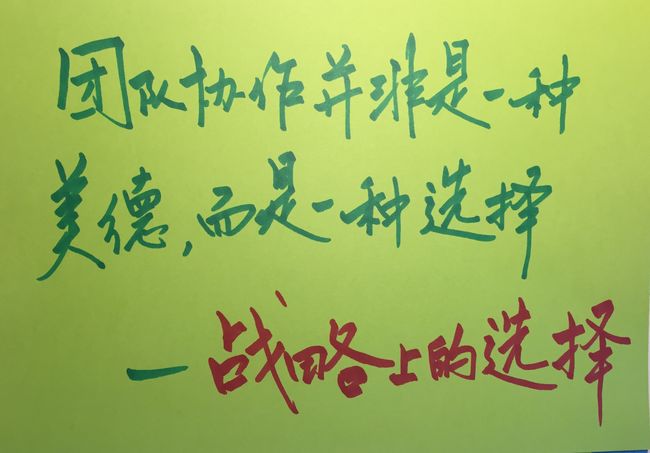 团队协作并非是一种
美德，而是一种选择
—战略上的选择